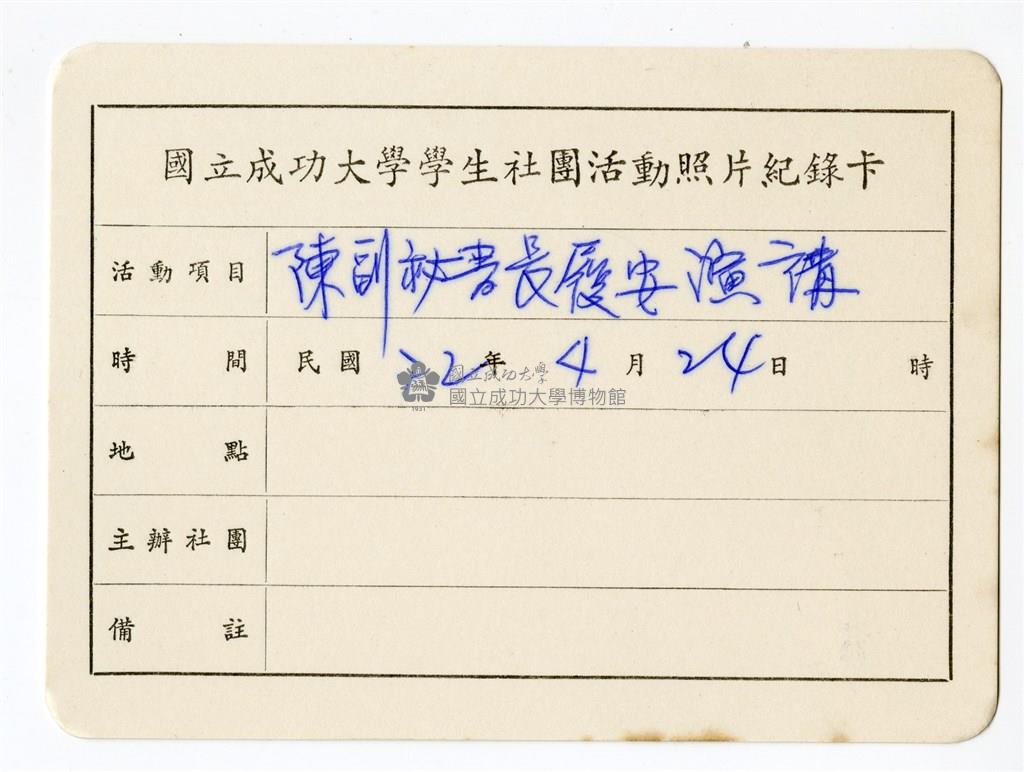 國立成功大學學生社團活動照片紀錄卡
活動項目 陳副秘書長履安演講
時間 民國72年4月24日 時
國立成功大學
國立成功大學博物館
1931
地點
主辦社團
備註